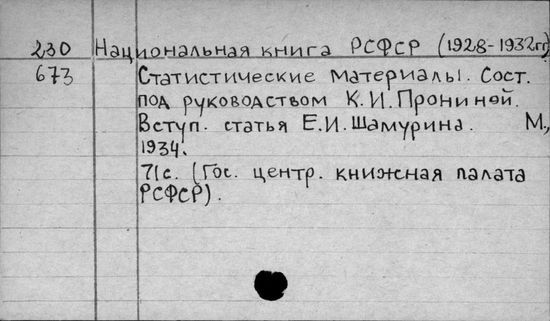 230 Национальная книга РСФСР (1928-1932гг)
673 Статистические материалы. Сост.
под руководством К.И. Прониной.
Вступ. статья Е.И. Шамурина. М.,
1934.
71с. (Гос. центр. книжная палата
РСФСР).